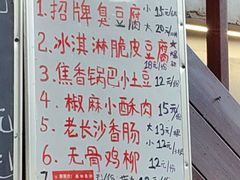 1.招牌臭豆腐 小15元/份
大20元/份
2.冰淇淋脆皮豆腐
18元/份
3.焦香锅巴小土豆
12元/份
4.椒麻小酥肉 15元/份
5.老长沙香肠 大13元/
小12元/
6.无骨鸡柳 12元/份
7